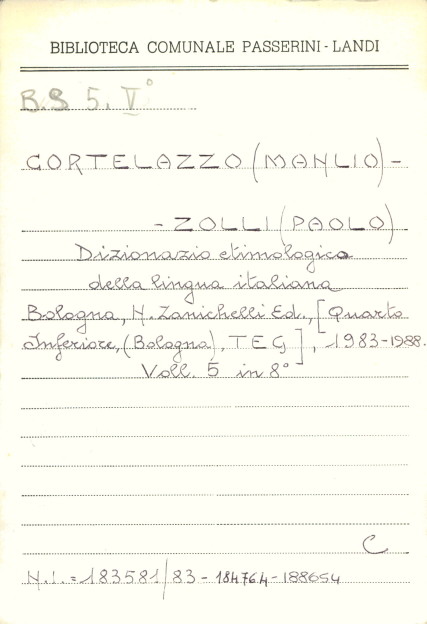 BIBLIOTECA COMUNALE PASSERINI - LANDI
B.S 5. V°
CORTELAZZO (MANLIO) -
- ZOLLI (PAOLO)
Dizionario etimologico
della lingua italiana
Bologna, N. Zanichelli Ed., [Quarto
Inferiore, (Bologna), TEG], 1983-1988.
Voll. 5 in 8°
C
N.I. = 183581/83 - 184764 - 188654